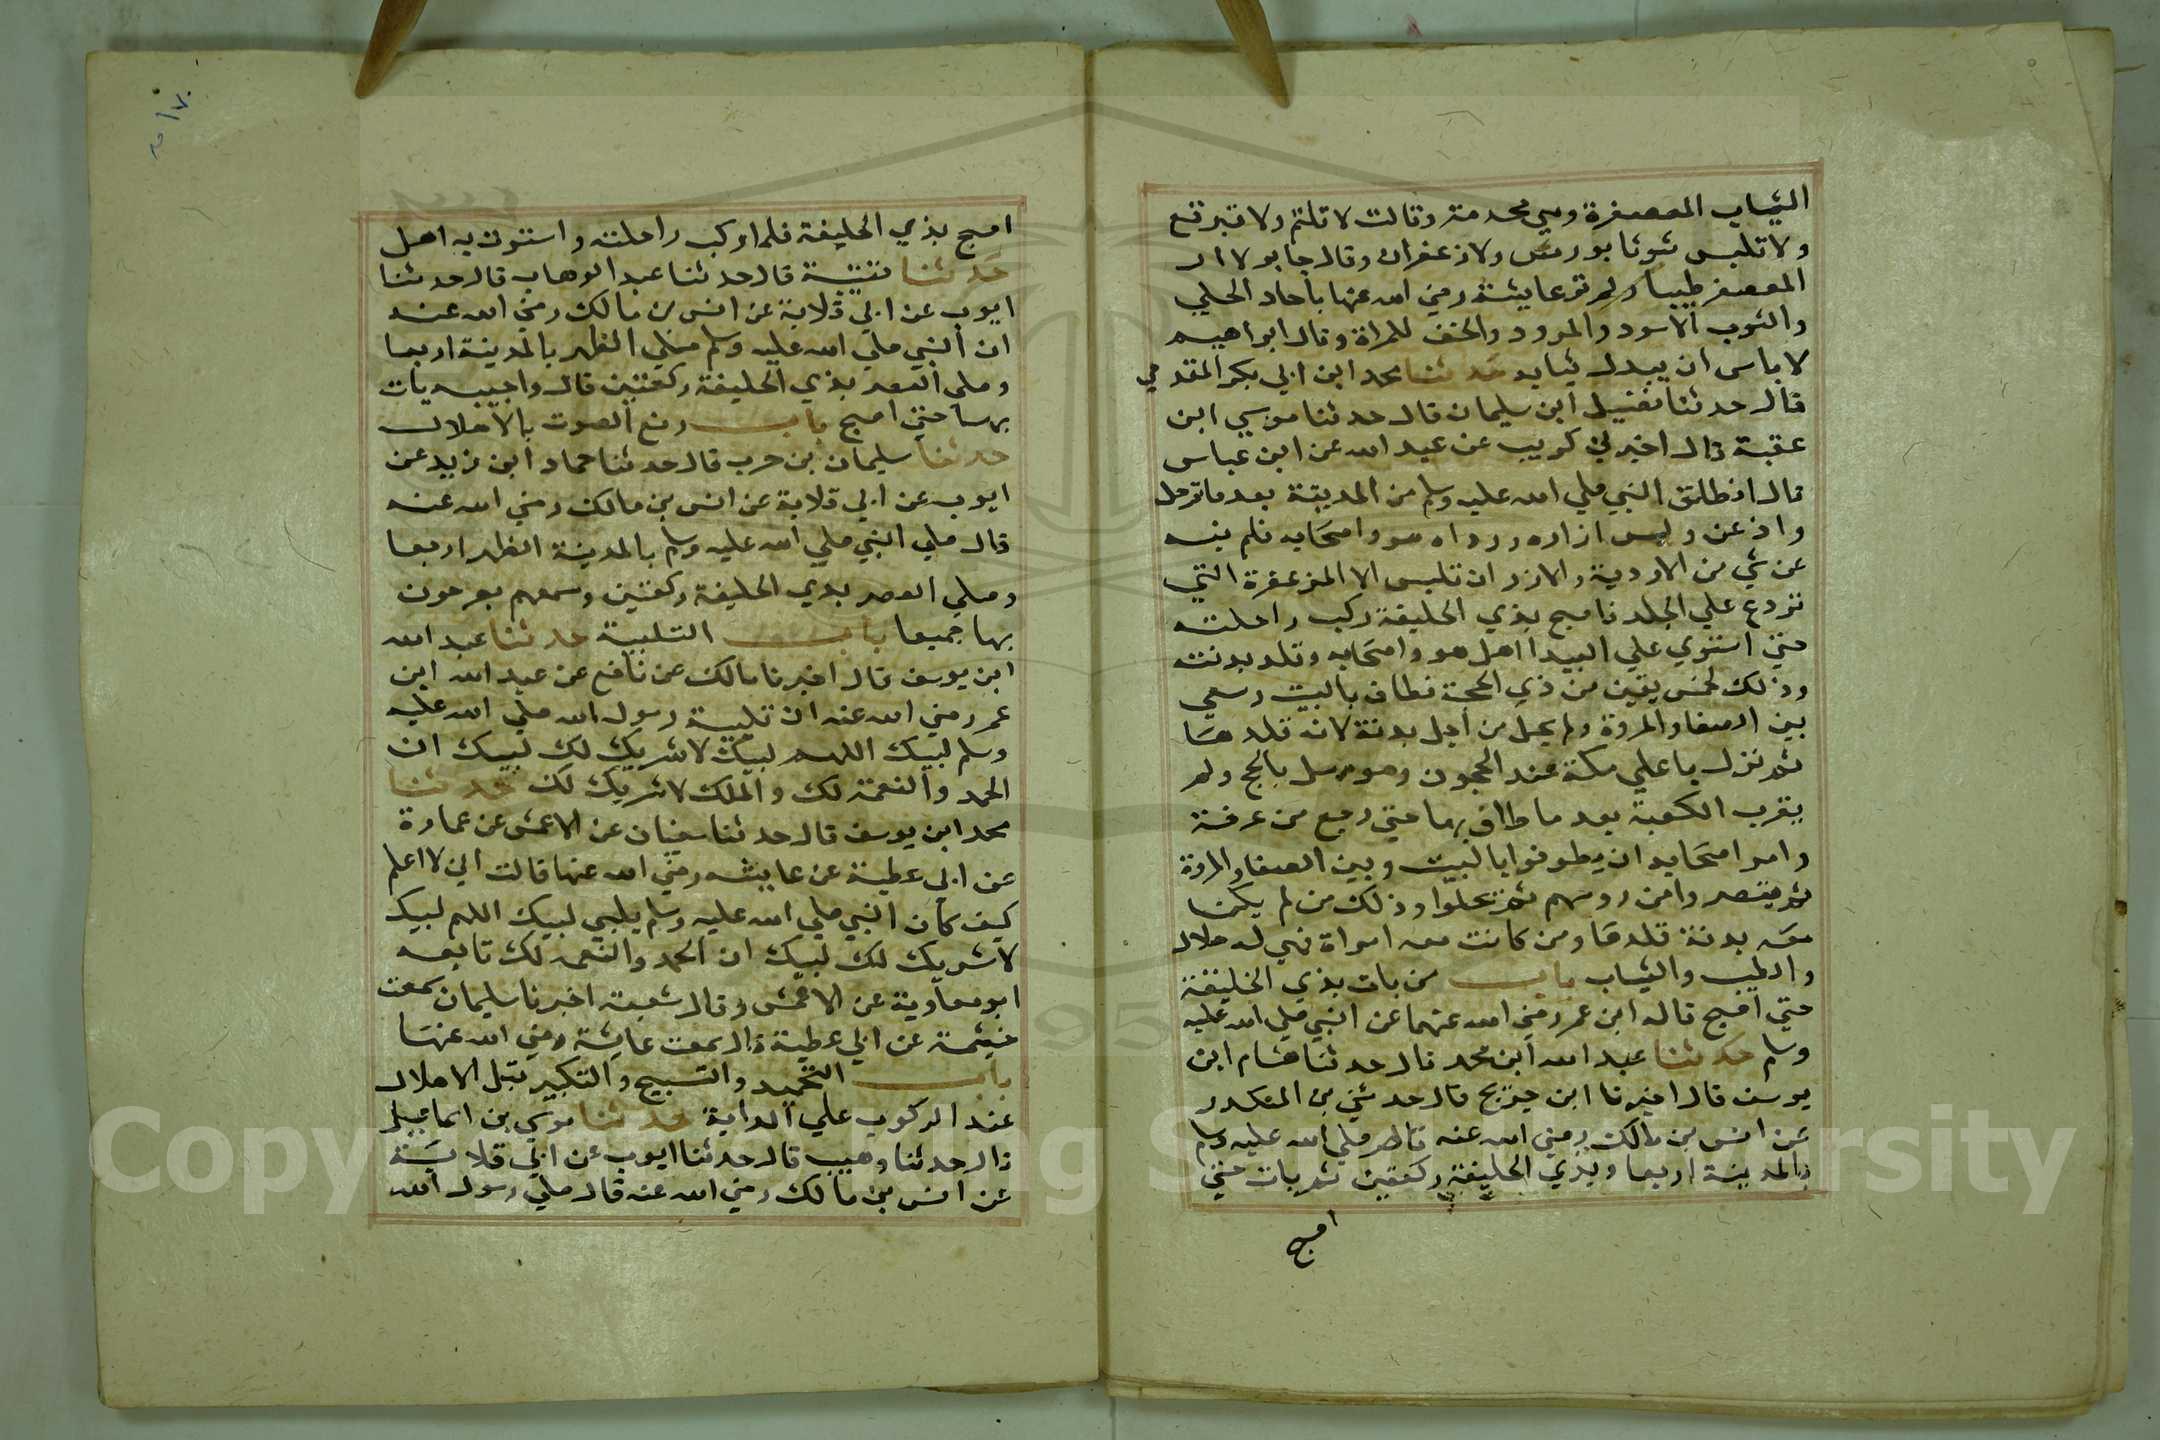 الثياب المعصفرة وهي محرمة وقالت لا تلثم ولا تبرقع
ولا تلبس ثوبا بورس ولا زعفران وقال جابر لا ار
المعصفر طيبا ولم تر عايشة رضي الله عنها باحاد الحلي
والثوب الاسود والمورد والخف للمراة وقال ابراهيم
لا باس ان يبدل ثيابه حدثنا محمد ابن ابي بكر المقدمي
قال حدثنا فضيل ابن سليمان قال حدثنا موسي ابن
عقبة قال اخبرني كريب عن عبد الله عن ابن عباس
قال انطلق النبي صلي الله عليه وسلم من المدينة بعد ما ترجل
وادعن ولبس ازاره ورداه هو واصحابه فلم ينه
عن شي من الاردية والازر ان تلبس الا المزعفرة التي
تردع علي الجلد فاصبح بذي الحليفة ركب راحلته
حتي استوي علي البيدا اهل هو واصحابه وقلد بدنته
وذلك لخمس بقين من ذي الحجة فطاف بالبيت وسعي
بين الصفا والمروة ولم يحل من اجل بدنة لانه قلدها
ثم نزل باعلي مكة عند الحجون وهو مهل بالحج ولم
يقرب الكعبة بعد ما طاف بها حتي رجع من عرفة
وامر اصحابه ان يطوفوا بالبيت وبين الصفا والمروة
ثم يقصروا من روسهم ثم تحلوا وذلك من لم يكن
معه بدنة قلدها ومن كانت معه امراة فهي له حلال
والطيب والثياب باب من بات بذي الحليفة
حتي اصبح قاله ابن عمر رضي الله عنهما عن النبي صلي الله عليه
وسلم حدثنا عبد الله ابن محمد قال حدثنا هشام ابن
يوسف قال اخبرنا ابن جريج قال حدثني بن المنكدر
عن انس بن مالك رضي الله عنه قال صلي الله عليه وسلم
بالمدينة اربعا وبذي الحليفة ركعتين ثم بات حتي
اصبح
اصبح بذي الحليفة فلما ركب راحلته واستوت به اهل
حدثنا قتيبة قال حدثنا عبد الوهاب قال حدثنا
ايوب عن ابي قلابة عن انس بن مالك رضي الله عنه
ان النبي صلي الله عليه وسلم صلي الظهر بالمدينة اربعا
وصلي العصر بذي الحليفة ركعتين قال واحسبه بات
بها حتي اصبح باب رفع الصوت بالاهلال
حدثنا سليمان بن حرب قال حدثنا حماد ابن زيد عن
ايوب عن ابي قلابة عن انس بن مالك رضي الله عنه
قال صلي النبي صلي الله عليه وسلم بالمدينة الظهر اربعا
وصلي العصر بذي الحليفة ركعتين وسمعهم يصرحون
بها جميعا باب التلبية حدثنا عبد الله
ابن يوسف قال اخبرنا مالك عن نافع عن عبد الله ابن
عمر رضي الله عنه ان تلبية رسول الله صلي الله عليه
وسلم لبيك اللهم لبيك لا شريك لك لبيك ان
الحمد والنعمة لك والملك لا شريك لك حدثنا
محمد ابن يوسف قال حدثنا سفيان عن الاعمش عن عمارة
عن ابي عطية عن عايشه رضي الله عنها قالت اني لا اعلم
كيف كان النبي صلي الله عليه وسلم يلبي لبيك اللهم لبيك
لا شريك لك لبيك ان الحمد والنعمه لك تابعه
ابو معاوية عن الاعمش وقال شعبة اخبرنا سليمان سمعت
خيثمة عن ابي عطية قال سمعت عايشة رضي الله عنها
باب التحميد والتسبيح والتكبير قبل الاهلال
عند الركوب علي الدابة حدثنا موسي بن اسماعيل
قال حدثنا وهيب قال حدثنا ايوب عن ابي قلابة
عن انس بن مالك رضي الله عنه قال صلي رسول الله
Copyright © King Saud University